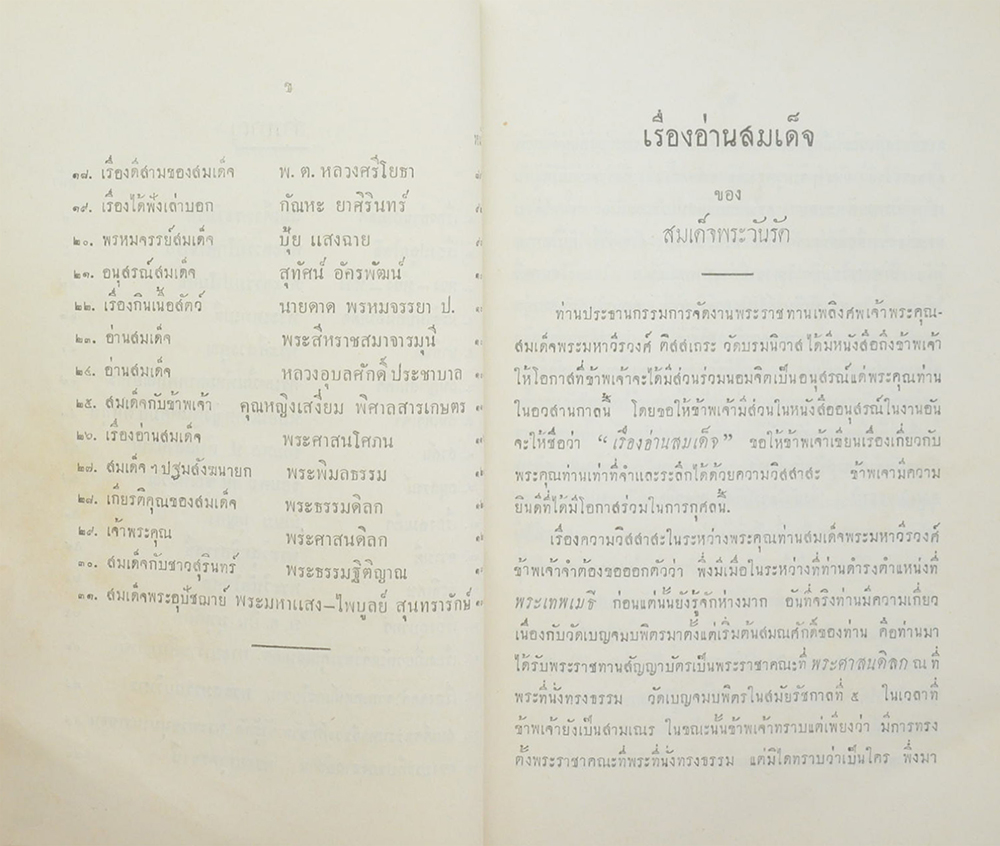 ข
๑๘. เรื่องดีสามของสมเด็จ พ. ต. หลวงศรีโยธา
๑๙. เรื่องได้ฟังเล่าบอก กัณหะ ยาศิรินทร์
๒๐. พรหมจรรย์สมเด็จ บุ๊ย แสงฉาย
๒๑. อนุสรณ์สมเด็จ สุทัศน์ อัครพัฒน์
๒๒. เรื่องกินเนื้อสัตว์ นายดาด พรหมจรรยา ป.
๒๓. อ่านสมเด็จ พระสีหราชสมาจารมุนี
๒๔. อ่านสมเด็จ หลวงอุบลศักดิ์ประชาบาล
๒๕. สมเด็จกับข้าพเจ้า คุณหญิงเสงี่ยม พิศาลสารเกษตร
๒๖. เรื่องอ่านสมเด็จ พระศาสนโศภน
๒๗. สมเด็จ ฯ ปฐมสังฆนายก พระพิมลธรรม
๒๘. เกียรติคุณของสมเด็จ พระธรรมดิลก
๒๙. เจ้าพระคุณ พระศาสนดิลก
๓๐. สมเด็จกับชาวสุรินทร์ พระธรรมฐิติญาณ
๓๑. สมเด็จพระอุปัชฌาย์ พระมหาแสง-ไพบูลย์ สุนทรารักษ์
เรื่องอ่านสมเด็จ
ของ
สมเด็จพระวันรัต
ท่านประธานกรรมการจัดงานพระราชทานเพลิงศพเจ้าพระคุณ-
สมเด็จพระมหาวีรวงศ์ ติสสเถระ วัดบรมนิวาส ได้มีหนังสือถึงข้าพเจ้า
ให้โอกาสที่ข้าพเจ้าจะได้มีส่วนร่วมนอมจิตเป็นอนุสรณ์แด่พระคุณท่าน
ในอวสานกาลนี้ โดยขอให้ข้าพเจ้ามีส่วนในหนังสืออนุสรณ์ในงานอัน
จะให้ชื่อว่า “เรื่องอ่านสมเด็จ” ขอให้ข้าพเจ้าเขียนเรื่องเกี่ยวกับ
พระคุณท่านเท่าที่จำและระลึกได้ด้วยความวิสสาสะ ข้าพเจ้ามีความ
ยินดีที่ได้มีโอกาสร่วมในการกุศลนี้.
เรื่องความวิสสาสะในระหว่างพระคุณท่านสมเด็จพระมหาวีรวงศ์
ข้าพเจ้าจำต้องขอออกตัวว่า พึ่งมีเมื่อในระหว่างที่ท่านดำรงตำแหน่งที่
พระเทพเมธี ก่อนแต่นั้นยังรู้จักห่างมาก อันที่จริงท่านมีความเกี่ยว
เนื่องกับวัดเบญจมบพิตรมาตั้งแต่เริ่มต้นสมณศักดิ์ของท่าน คือท่านมา
ได้รับพระราชทานสัญญาบัตรเป็นพระราชาคณะที่ พระศาสนดิลก ณ ที่
พระที่นั่งทรงธรรม วัดเบญจมบพิตรในสมัยรัชกาลที่ ๕ ในเวลาที่
ข้าพเจ้ายังเป็นสามเณร ในขณะนั้นข้าพเจ้าทราบแต่เพียงว่า มีการทรง
ตั้งพระราชาคณะที่พระที่นั่งทรงธรรม แต่มิได้ทราบว่าเป็นใคร พึ่งมา